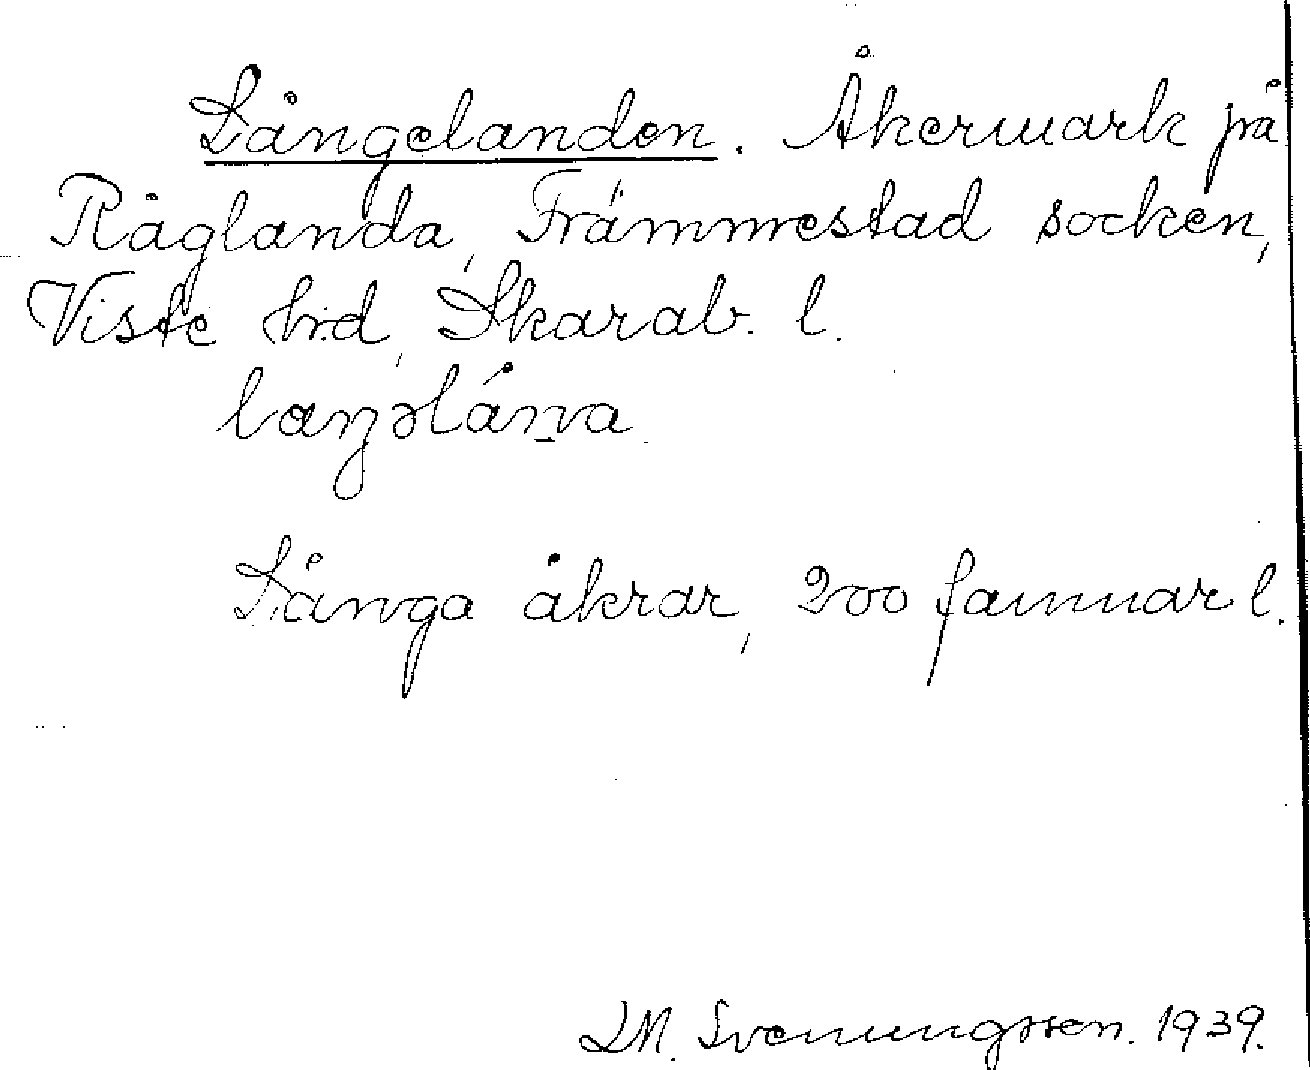 Långelanden. Åkermark på
Råglanda, Främmestad socken,
Viste hrd, Skarab. l.
laŋəlána
Långa åkrar, 200 famnar l.
LM. Svenungsson. 1939.